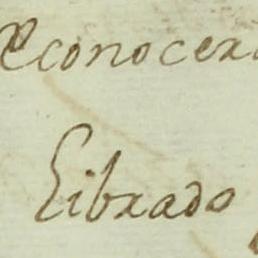 econocera
Librado